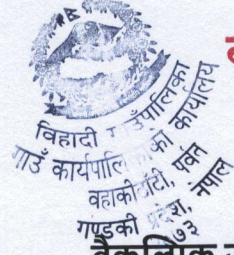 विहादी गाउँपालिका
गाउँ कार्यपालिकाको कार्यालय
वहाकीठाँटी, पर्वत
गण्डकी प्रदेश, नेपाल
२०७३